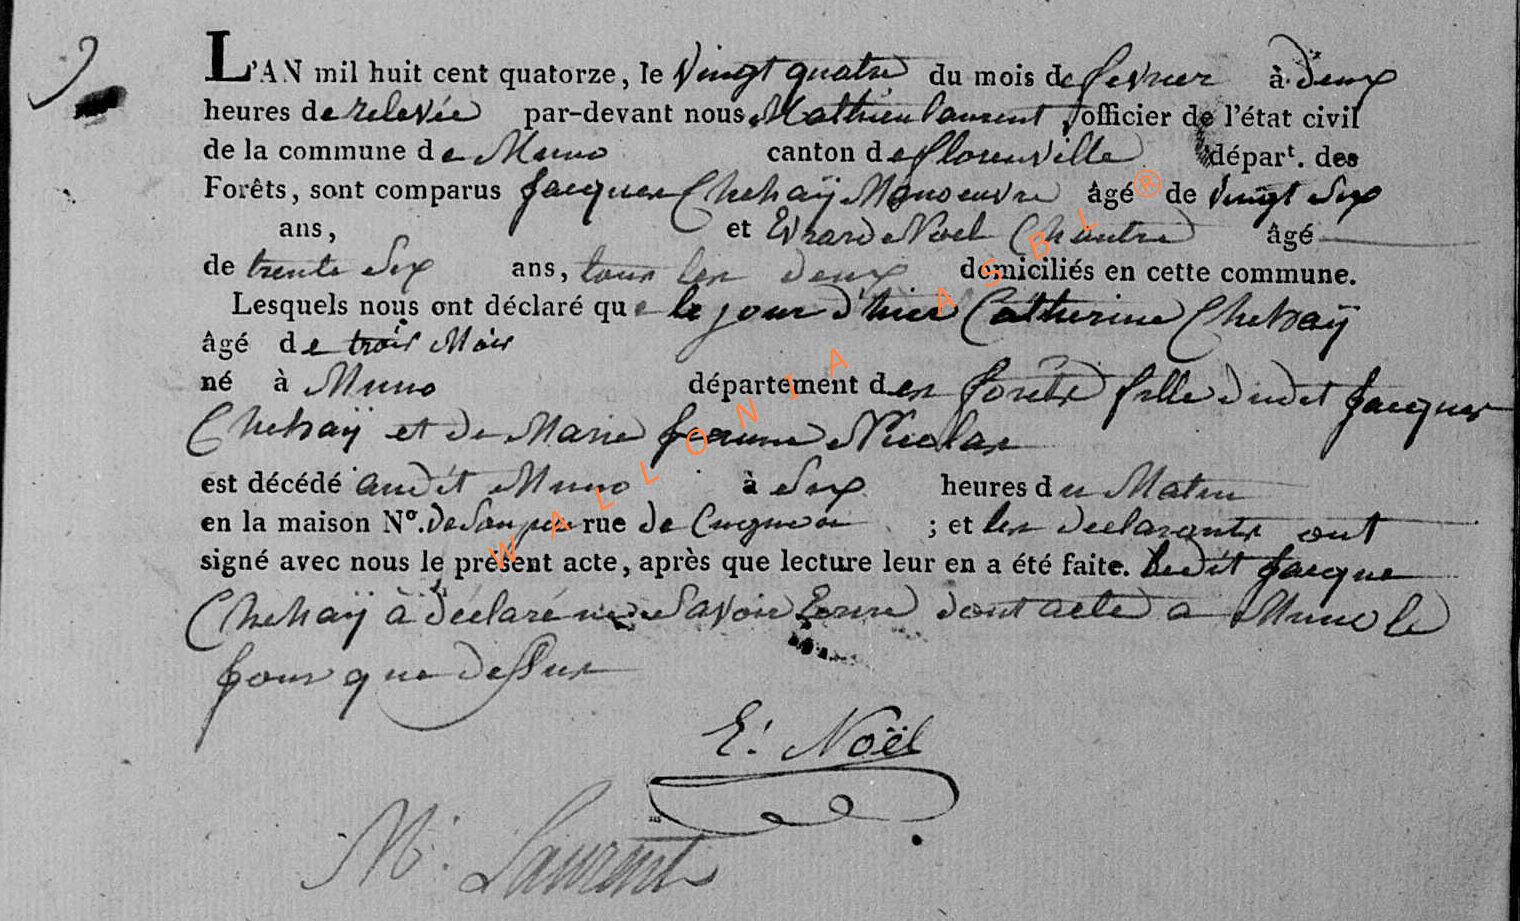 9
L'AN mil huit cent quatorze, le vingt quatre du mois de fevrier à deux
heures de relevée par-devant nous Mathieu laurent officier de l'état civil
de la commune de Muno canton de florenville départ. des
Forêts, sont comparus Jacques Chehaÿ Manoeuvre âgé de vingt Six
ans, et Evrard Noel Chantre âgé
de trente Six ans, tous les deux domiciliés en cette commune.
Lesquels nous ont déclaré que le jour d'hier Catherine Chehaÿ
âgé de trois Mois
né à Muno département des forêts fille dudit Jacques
Chehaÿ et de Marie Jeanne Nicolas
est décédé audit Muno à Six heures du Matin
en la maison N°. de Son pere rue de ; et les declarants ont
signé avec nous le présent acte, après que lecture leur en a été faite. ledit Jacque
Chehaÿ à déclaré ne Savoir Ecrire dont acte a Muno le
Jour que dessus
E: Noël
M. Laurent
WALLONIA ASBL ®